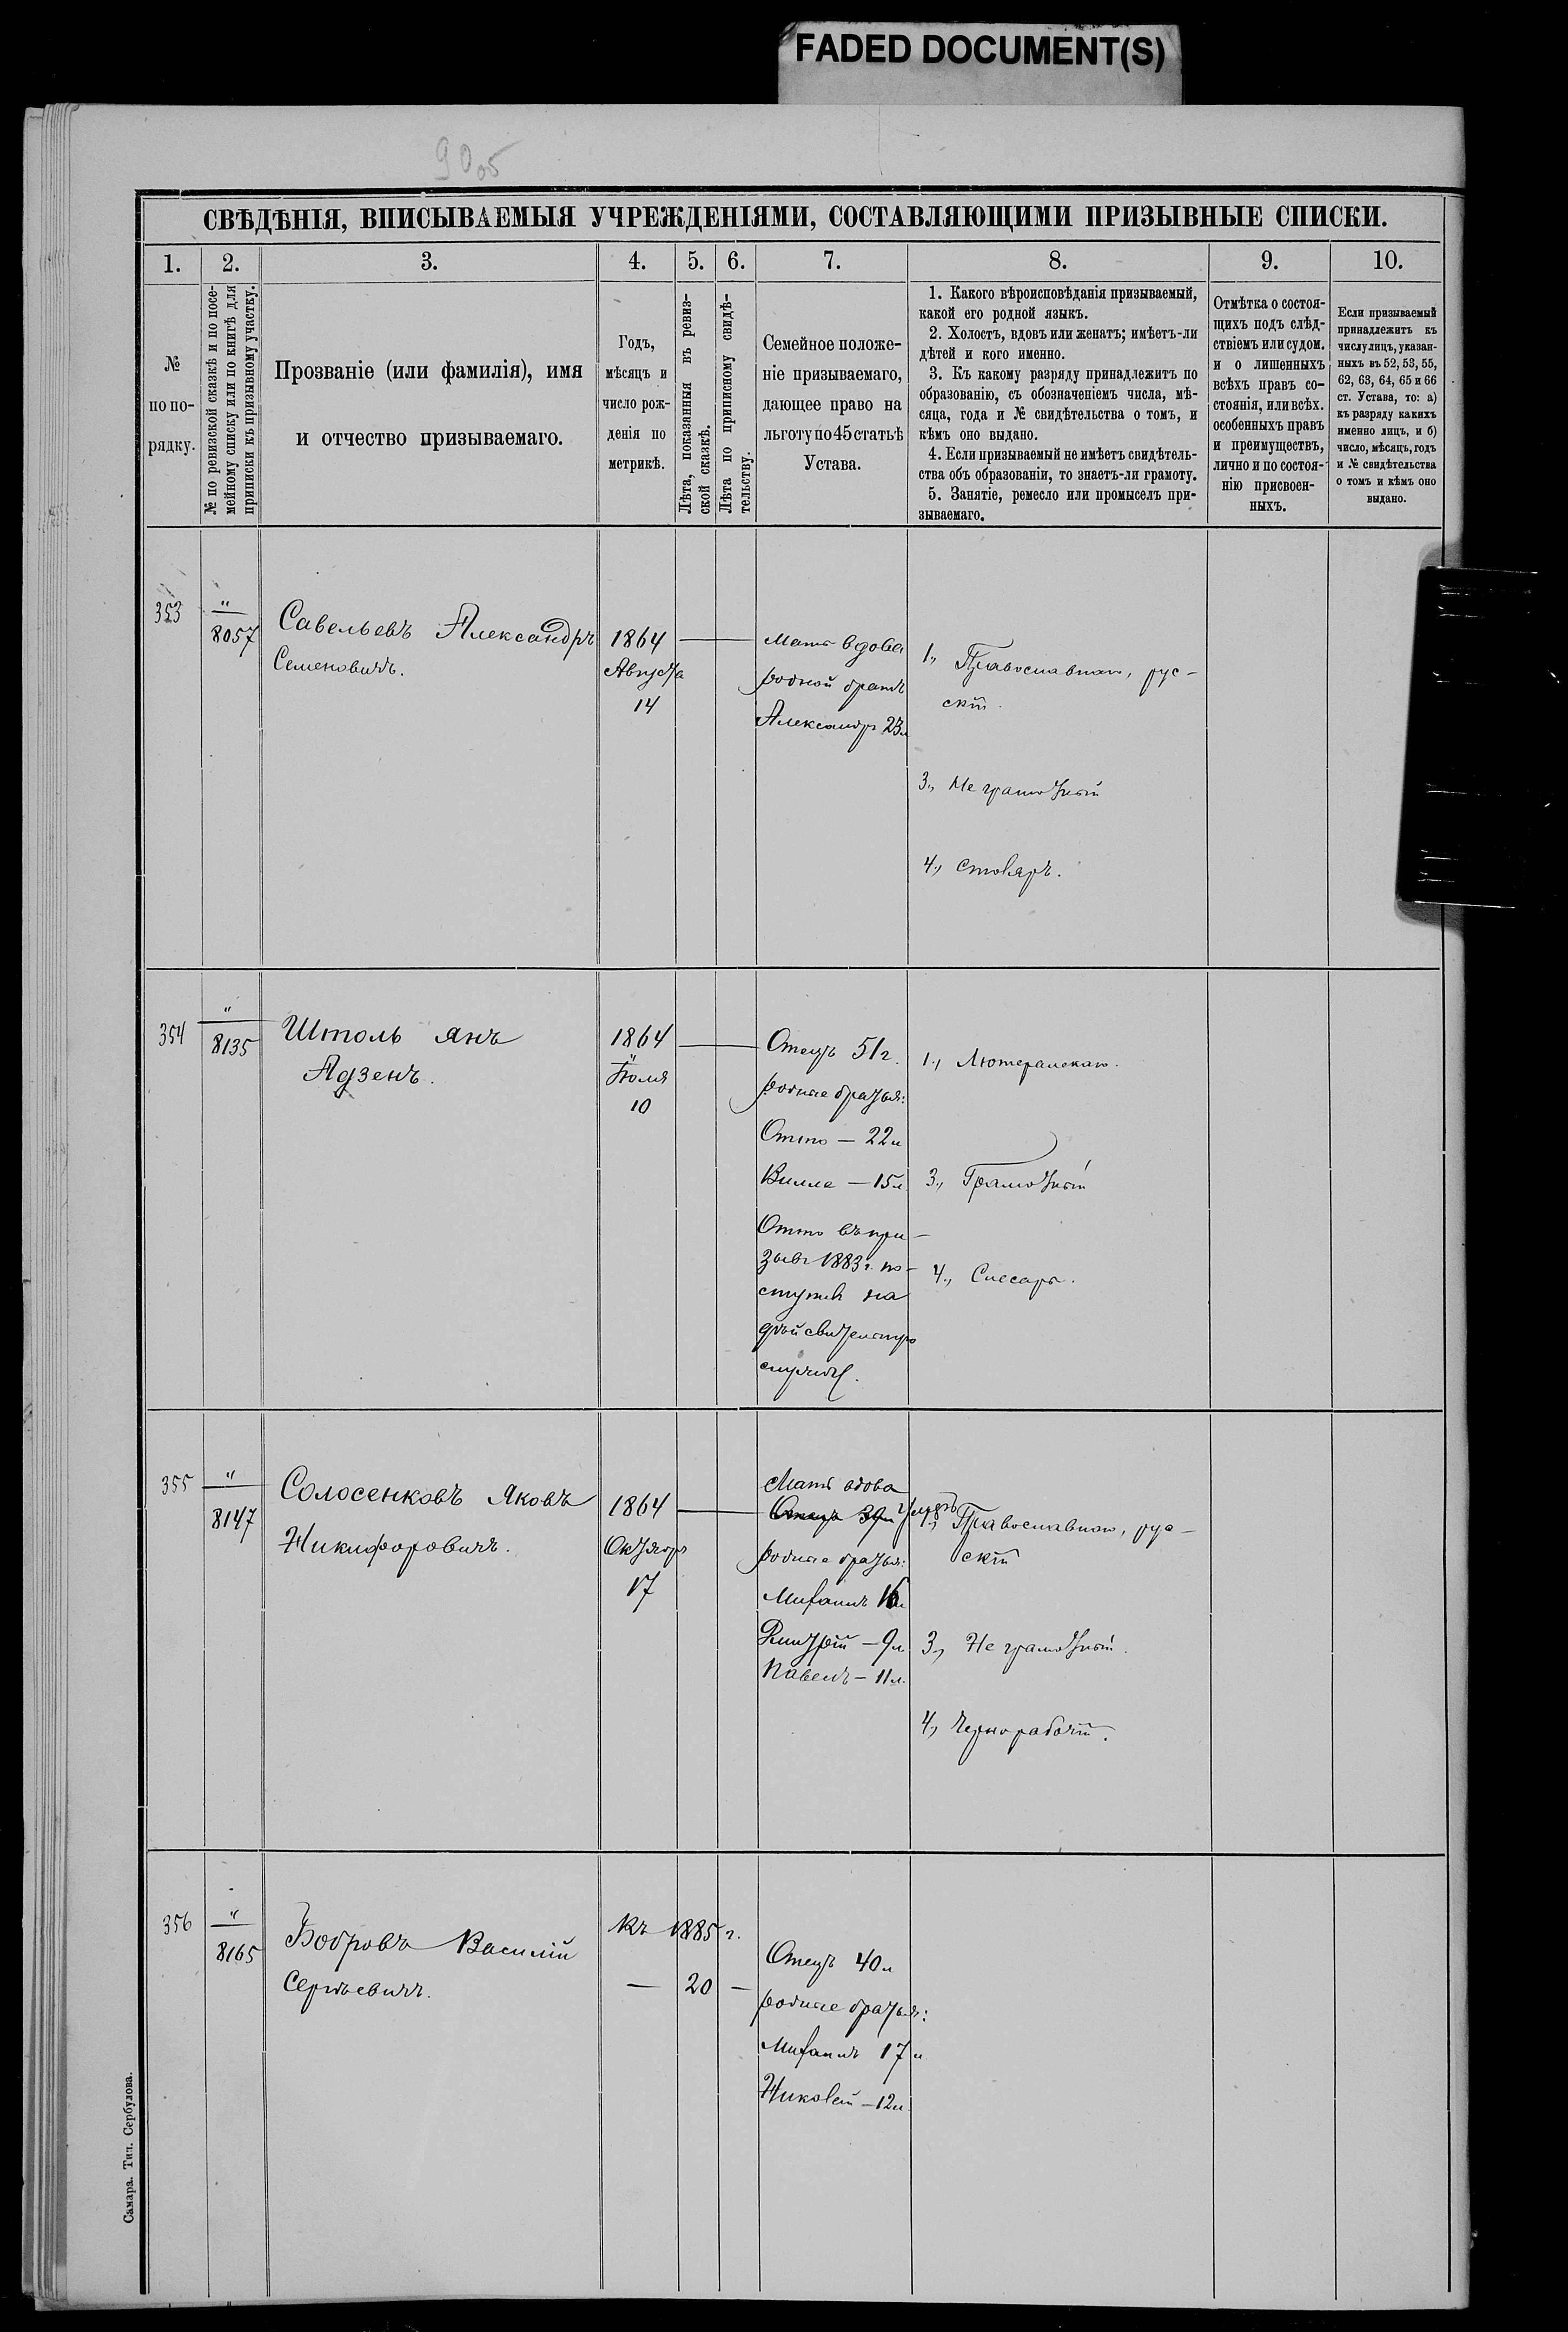 FADED DOCUMENT(S)
90 об
СВѢДѢНІЯ, ВПИСЫВАЕМЫЯ УЧРЕЖДЕНІЯМИ, СОСТАВЛЯЮЩИМИ ПРИЗЫВНЫЕ СПИСКИ.
1.
№
по по-
рядку.
2.
№ по ревизской сказкѣ и по посе-
мейному списку или по книгѣ для
приписки къ призывному участку.
3.
Прозваніе (или фамилія), имя
и отчество призываемаго.
4.
Годъ,
мѣсяцъ и
число рож-
денія по
метрикѣ.
5.
Лѣта, показанныя въ ревиз-
ской сказкѣ.
6.
Лѣта по приписному свидѣ-
тельству.
7.
Семейное положе-
ніе призываемаго,
дающее право на
льготу по 45 статьѣ
Устава.
8.
1. Какого вѣроисповѣданія призываемый,
какой его родной языкъ.
2. Холостъ, вдовъ или женатъ; имѣетъ-ли
дѣтей и кого именно.
3. Къ какому разряду принадлежитъ по
образованію, съ обозначеніемъ числа, мѣ-
сяца, года и № свидѣтельства о томъ, и
кѣмъ оно выдано.
4. Если призываемый не имѣетъ свидѣтель-
ства объ образованіи, то знаетъ-ли грамоту.
5. Занятіе, ремесло или промыселъ при-
зываемаго.
9.
Отмѣтка о состоя-
щихъ подъ слѣд-
ствіемъ или судом.
и о лишенныхъ
всѣхъ правъ со-
стоянія, или всѣх.
особенныхъ правъ
и преимуществъ,
лично и по состоя-
нію присвоен-
ныхъ.
10.
Если призываемый
принадлежитъ къ
числу лицъ, указан-
ныхъ въ 52, 53, 55,
62, 63, 64, 65 и 66
ст. Устава, то: а)
къ разряду какихъ
именно лицъ, и б)
число, мѣсяцъ, годъ
и № свидѣтельства
о томъ и кѣмъ оно
выдано.
353
"
8057
Савельевъ Александръ
Семеновичъ.
1864
Августа
14
Мать вдова
родной братъ
Александръ 23л
1., Православнаго, рус-
скій.
3., Не грамотный
4., столяръ.
354
"
8135
Штоль Янъ
Адзенъ.
1864
Іюля
10
Отецъ 51г.
родные братья:
Отто — 22л
Вилле — 15л
Отто въ при-
зывъ 1883г. по-
ступилъ на
дѣйствительную
службу.
1., Лютеранскаго.
3., Грамотный
4., Слесарь.
355
"
8147
Солосенковъ Яковъ
Никифоровичъ.
1864
Октября
17
Мать вдова
Отецъ умеръ
родные братья:
Михаилъ 16л
Дмитрій — 9л.
Павелъ — 11л.
1., Православнаго, рус-
скій
3., Не грамотный.
4., Чернорабочій.
356
"
8165
Бобровъ Василій
Сергѣевичъ.
Къ 1885 г.
— 20 —
Отецъ 40л
родные братья:
Михаилъ 17л
Николай — 12л.
Самара. Тип. Сербулова.